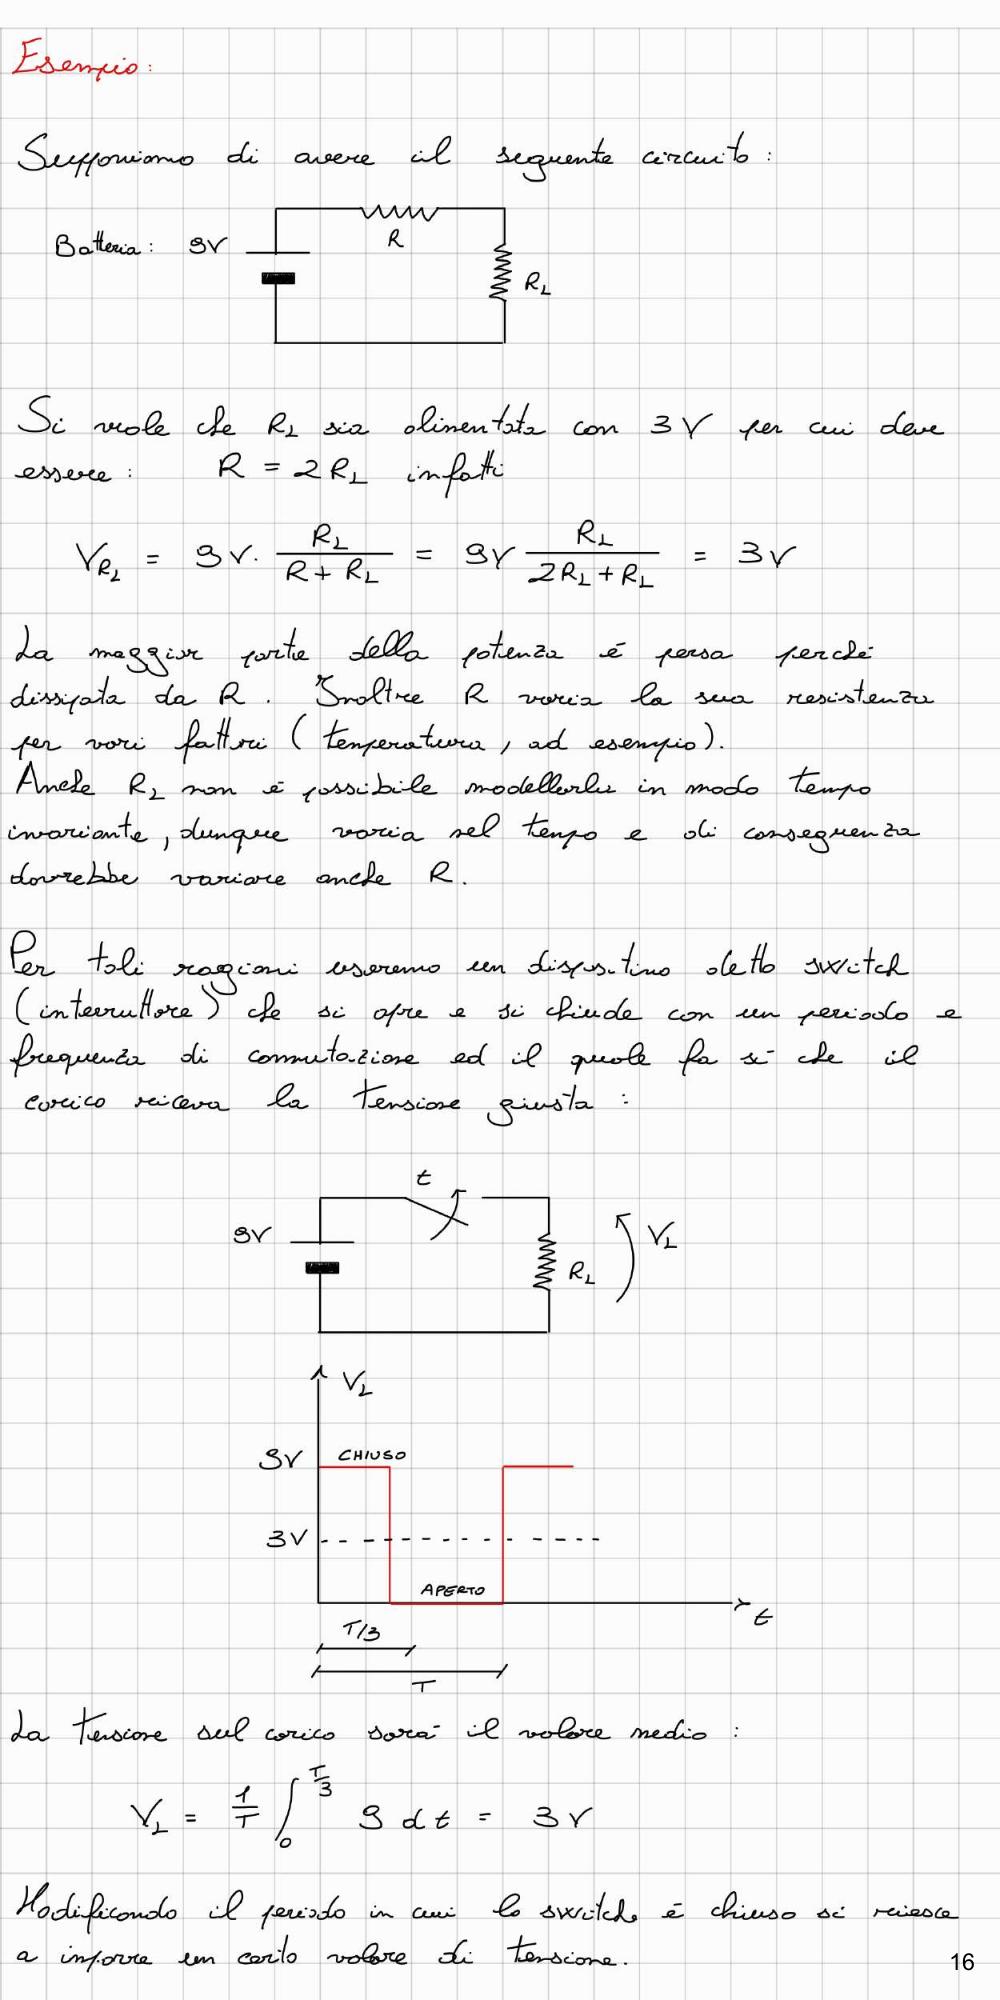 Esempio:
Supponiamo di avere il seguente circuito:
Batteria: 9V
R
R_L
Si vuole che R_L sia alimentata con 3V per cui deve
essere: R = 2R_L infatti
V_{R_L} = 9V · R_L / (R + R_L) = 9V R_L / (2R_L + R_L) = 3V
La maggior parte della potenza è persa perché
dissipata da R. Inoltre R varia la sua resistenza
per vari fattori (temperatura, ad esempio).
Anche R_L non è possibile modellarla in modo tempo
invariante, dunque varia nel tempo e di conseguenza
dovrebbe variare anche R.
Per tali ragioni useremo un dispositivo detto switch
(interruttore) che si apre e si chiude con un periodo e
frequenza di commutazione ed il quale fa sì che il
carico riceva la tensione giusta:
t
9V
R_L
V_L
V_L
9V
CHIUSO
3V
APERTO
t
T/3
T
La tensione sul carico sarà il valore medio:
V_L = 1/T ∫_0^{T/3} 9 dt = 3V
Modificando il periodo in cui lo switch è chiuso si riesce
a imporre un certo valore di tensione.
16